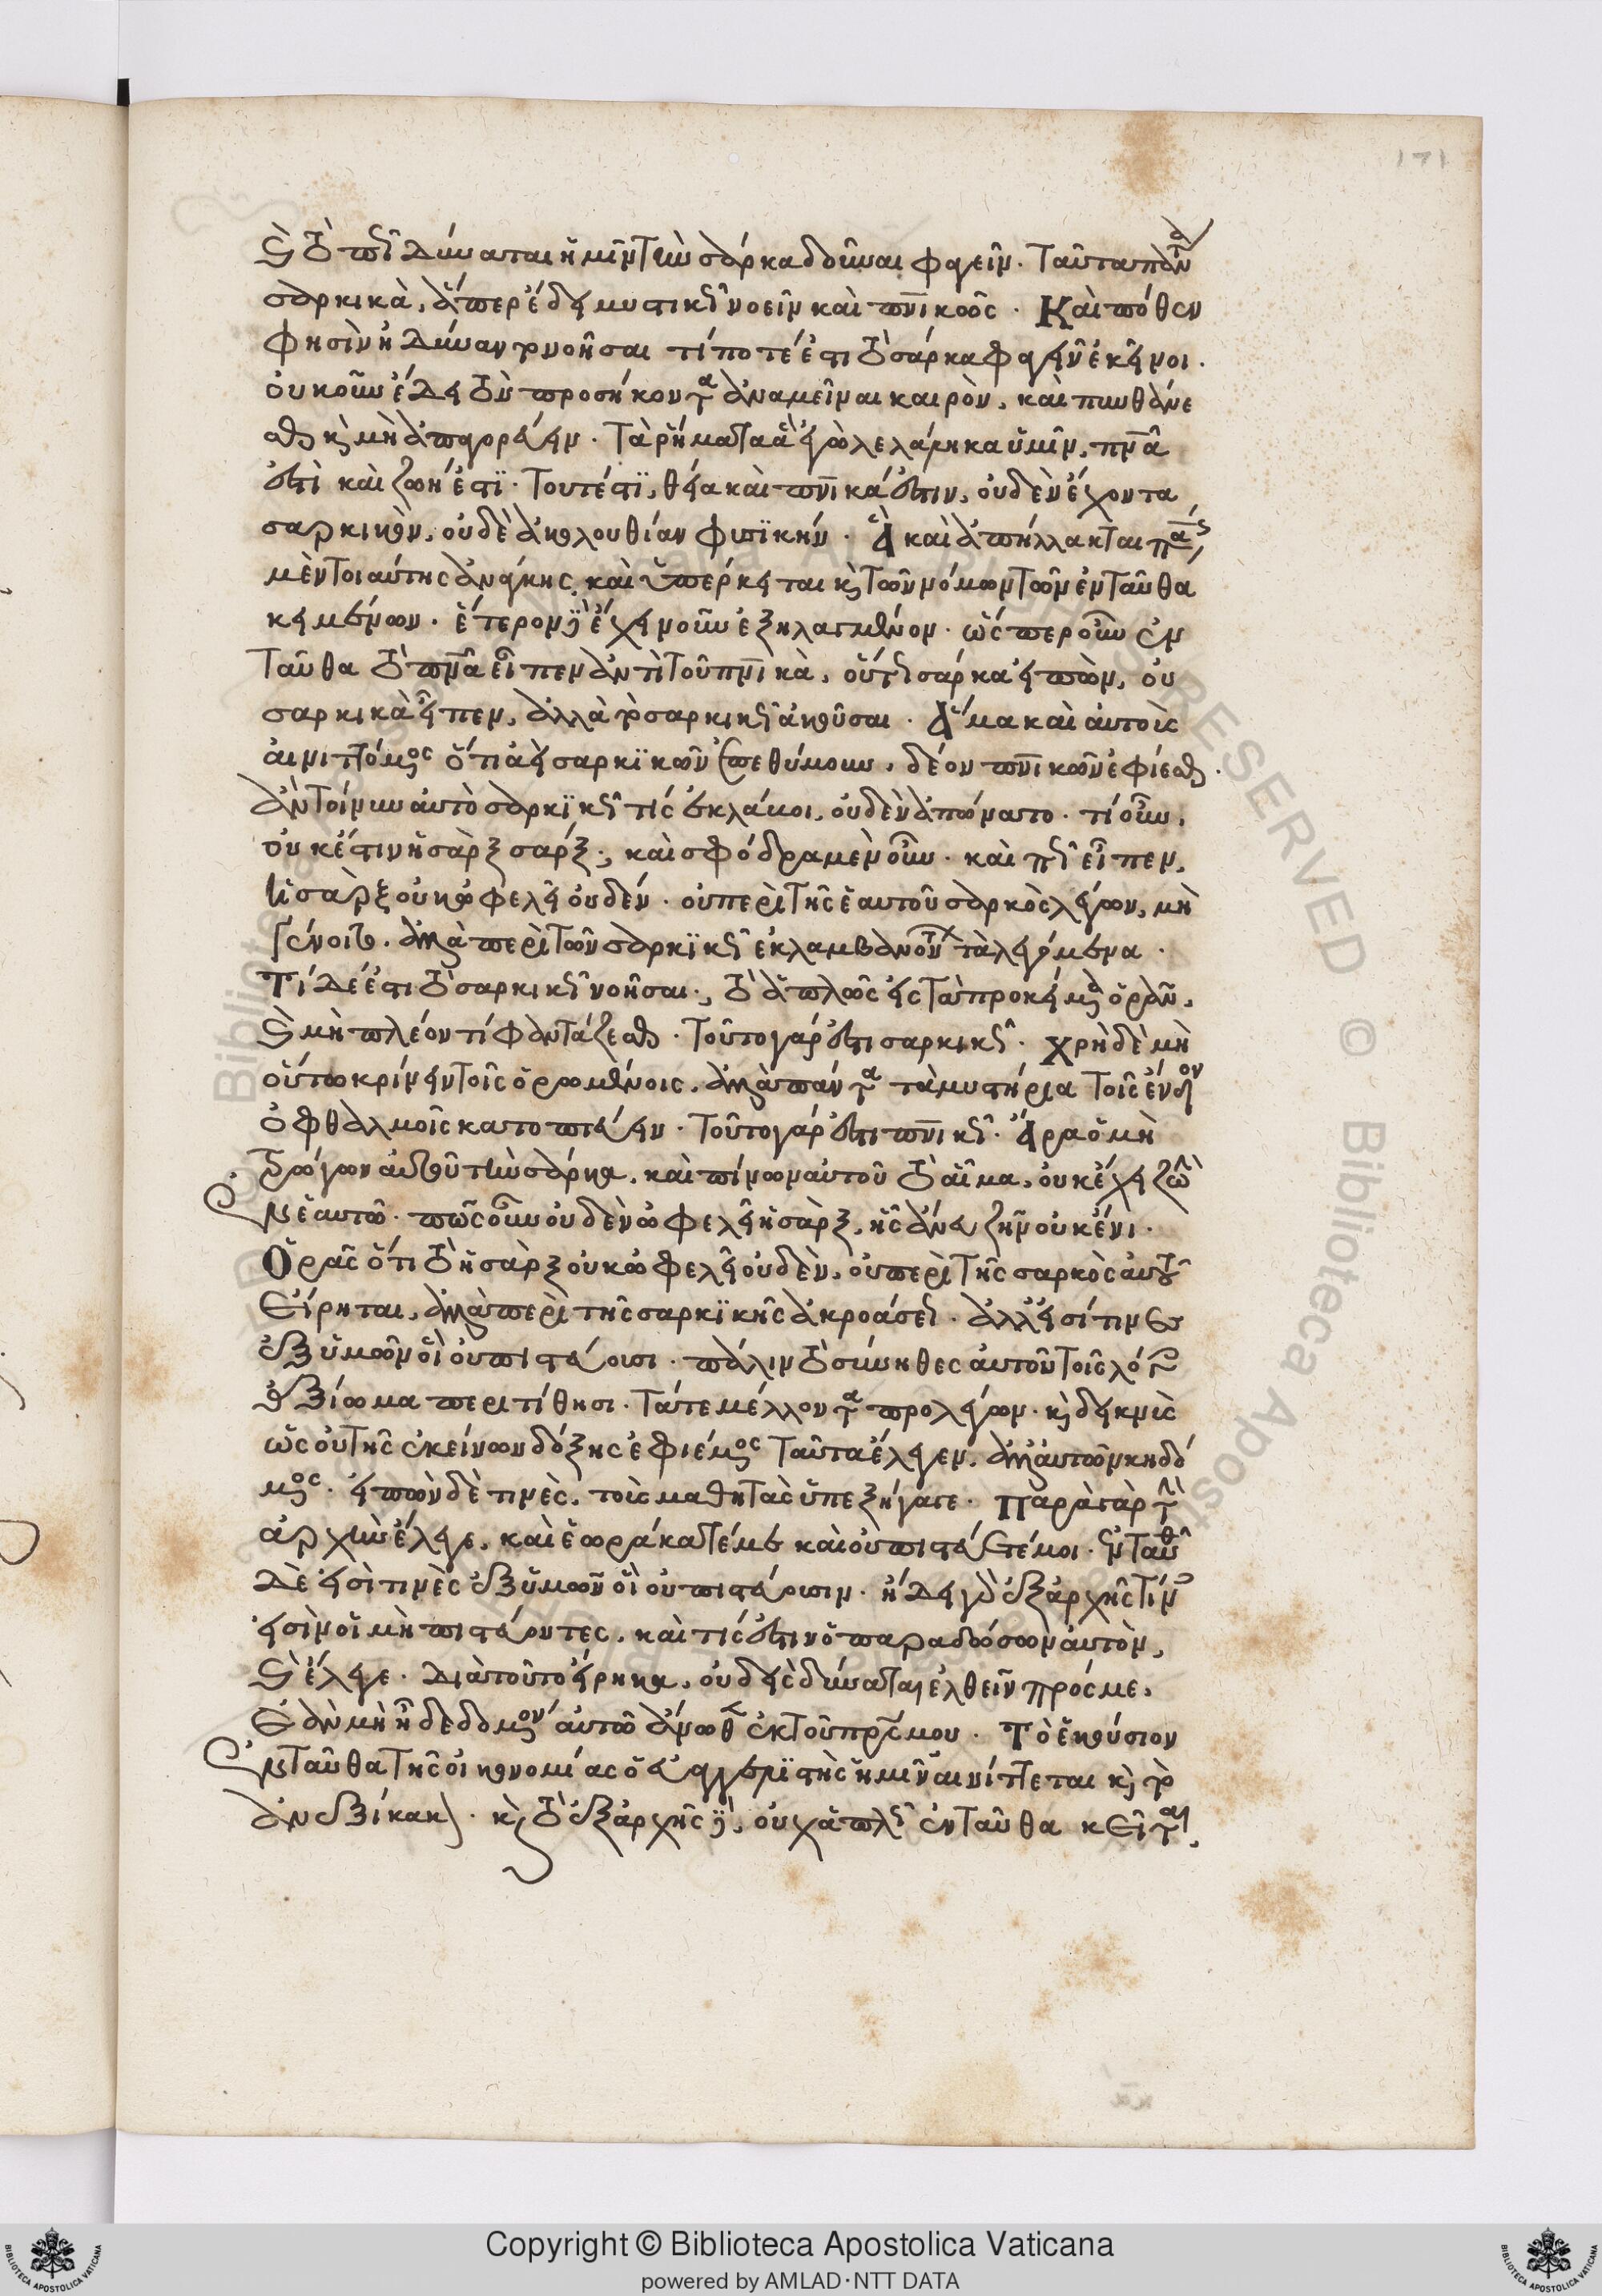 171
καὶ τὸ πῶς δύναται ἡμῖν τὴν σάρκα δοῦναι φαγεῖν. Ταῦτα πάντα
σαρκικὰ, ἅπερ ἔδει μυστικῶς νοεῖν καὶ πνικῶς. Καὶ πόθεν
φησὶν ἠδύναντο νοῆσαι τί ποτέ ἐστι τὸ σάρκα φαγεῖν ἐκεῖνοι.
οὐκοῦν ἔδει τὸν προσήκοντα ἀναμεῖναι καιρὸν, καὶ πυνθάνε
σθαι καὶ μὴ ἀπαγορεύειν. Τὰ ῥήματα ἃ ἐγὼ λελάληκα ὑμῖν, πνᾶ
ἐστὶ καὶ ζωή ἐστϊ. Τουτέστϊ, θεῖα καὶ πνικά ἐστιν, οὐδὲν ἔχοντα
σαρκικὸν, οὐδὲ ἀκολουθίαν φυσϊκήν. Ἀλλὰ καὶ ἀπήλλακται πάσης
μὲν τοιαύτης ἀνάγκης, καὶ ὑπέρκειται καὶ τῶν νόμων τῶν ἐνταῦθα
κειμένων. ἕτερον δὲ ἔχει νοῦν ἐξηλλαγμένον. ὥσπερ οὖν ἐν
ταῦθα τὸ πνᾶ εἶπεν ἀντὶ τοῦ πνικὰ, οὕτως σάρκα εἰπὼν, οὐ
σαρκικὰ εἶπεν, ἀλλὰ τὸ σαρκικῶς ἀκοῦσαι. Ἅμα καὶ αὐτοὺς
αἰνιττόμενος ὅτι ἀεὶ σαρκϊκῶν ἐπεθύμουν, δέον πνικῶν ἐφίεσθαι.
ἂν τοίνυν αὐτὸ σαρκϊκῶς τίς ἐκλάβοι, οὐδὲν ἀπώνατο. τί οὖν,
οὐκ ἔστιν ἡ σὰρξ σάρξ; καὶ σφόδρα μὲν οὖν. καὶ πῶς εἶπεν,
ἡ σὰρξ οὐκ ὠφελεῖ οὐδέν. οὐ περὶ τῆς ἑαυτοῦ σαρκὸς λέγων, μὴ
γένοιτο. ἀλλὰ περὶ τῶν σαρκϊκῶς ἐκλαμβανόντων τὰ λεγόμενα.
Τί δέ ἐστι τὸ σαρκικῶς νοῆσαι; τὸ ἁπλῶς εἰς τὰ προκείμενα ὁρᾶν,
καὶ μὴ πλέον τί φαντάζεσθαι. Τοῦτο γάρ ἐστι σαρκικῶς. χρὴ δὲ μὴ
οὕτω κρίνειν τοῖς ὁρωμένοις, ἀλλὰ πάντα τὰ μυστήρια τοῖς ἔνδον
ὀφθαλμοῖς κατοπτεύειν. Τοῦτο γάρ ἐστι πνικῶς. Ἄρα ὁ μὴ
τρώγων αὐτοῦ τὴν σάρκα, καὶ πίνων αὐτοῦ τὸ αἷμα, οὐκ ἔχει ζωὴν
ἐν ἑαυτῷ. πῶς οὖν οὐδὲν ὠφελεῖ ἡ σὰρξ, ἧς ἄνευ ζῆν οὐκ ἔνι.
Ὁρᾶς ὅτι τὸ ἡ σὰρξ οὐκ ὠφελεῖ οὐδὲν, οὐ περὶ τῆς σαρκὸς αὐτοῦ
εἴρηται, ἀλλὰ περὶ τῆς σαρκϊκῆς ἀκροάσεως. ἀλλ' εἰσί τινες
ἐξ ὑμῶν οἳ οὐ πιστεύουσι. πάλιν τὸ σύνηθες αὐτοῦ τοῖς λόγοις
ἀξίωμα περιτίθησι. Τά τε μέλλοντα προλέγων. καὶ δεικνὺς
ὡς οὐ τῆς ἐκείνων δόξης ἐφιέμενος ταῦτα ἔλεγεν, ἀλλ' αὐτῶν κηδό
μενος. εἰπὼν δὲ τινὲς, τοὺς μαθητὰς ὑπεξήγαγε. Παρὰ γὰρ τὴν
ἀρχὴν ἔλεγε, καὶ ἑωράκατέ με καὶ οὐ πιστεύετέ μοι. ἐνταῦθα
δὲ εἰσὶ τινὲς ἐξ ὑμῶν οἳ οὐ πιστεύουσιν. ᾔδει γὰρ ἐξ ἀρχῆς τίνες
εἰσὶν οἱ μὴ πιστεύοντες, καὶ τίς ἐστιν ὁ παραδώσων αὐτὸν,
καὶ ἔλεγε. Διὰ τοῦτο εἴρηκα, οὐδεὶς δύναται ἐλθεῖν πρός με,
ἐὰν μὴ ᾖ δεδομένον αὐτῷ ἄνωθεν ἐκ τοῦ πρς μου. Τὸ ἑκούσιον
ἐνταῦθα τῆς οἰκονομίας ὁ εὐαγγελϊστὴς ἡμῖν αἰνίττεται καὶ τὸ
ἀνεξίκακον. καὶ τὸ ἐξ ἀρχῆς δὲ, οὐχ ἁπλῶς ἐνταῦθα κεῖται,
Copyright © Biblioteca Apostolica Vaticana
powered by AMLAD·NTT DATA